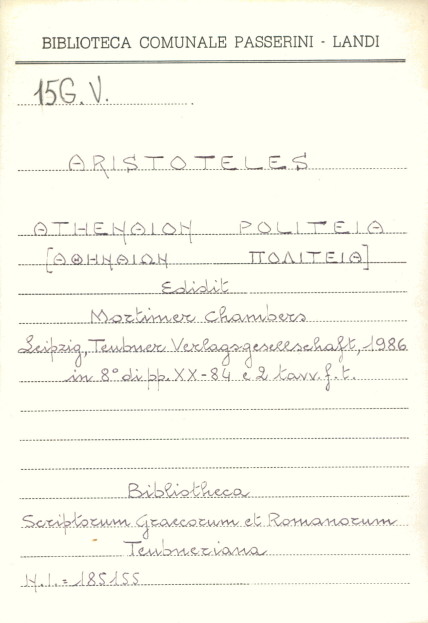 BIBLIOTECA COMUNALE PASSERINI - LANDI
15G.V.
ARISTOTELES
ATHENAION POLITEIA
[ΑΘΗΝΑΙΩΝ ΠΟΛΙΤΕΙΑ]
Edidit
Mortimer Chambers
Leipzig, Teubner Verlagsgesellschaft, 1986
in 8° di pp. XX-84 e 2 tavv. f. t.
Bibliotheca
Scriptorum Graecorum et Romanorum
Teubneriana
N.I.= 185155